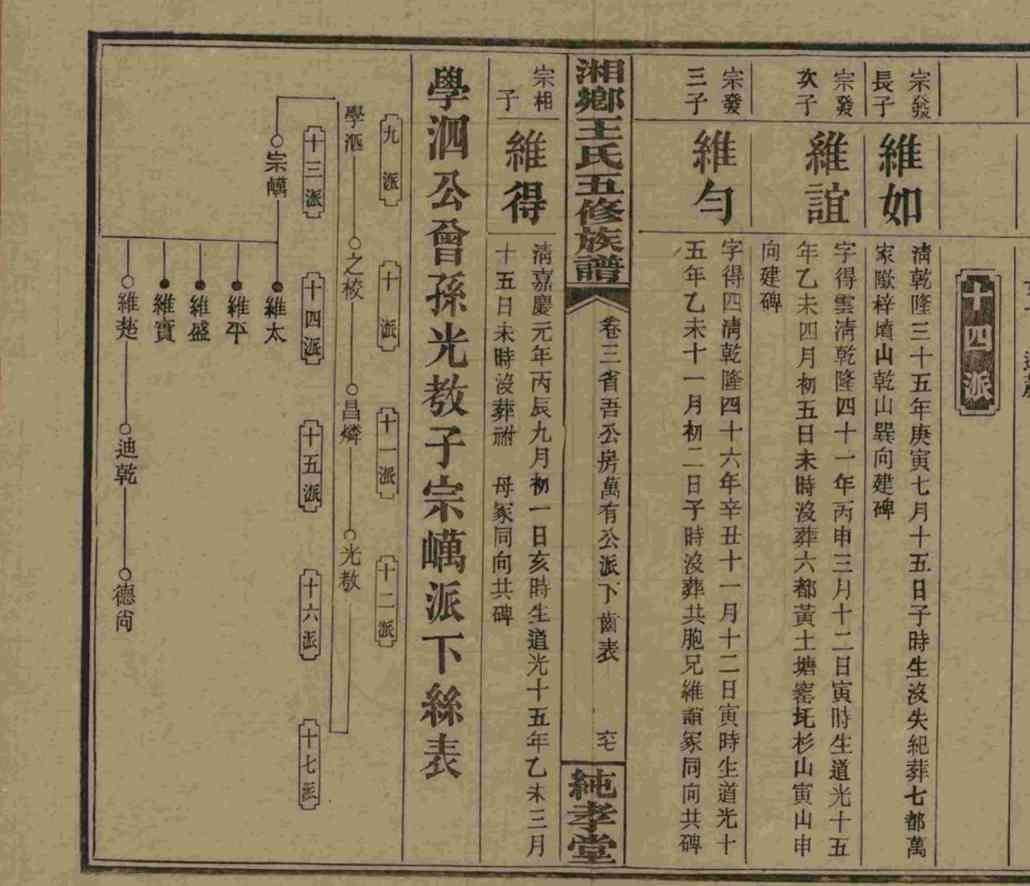 十四派
宗發長子
維如
淸乾隆三十五年庚寅七月十五日子時生沒失紀葬七都萬
家歐梓墳山乾山巽向建碑
宗發次子
維誼
字得雲淸乾隆四十一年丙申三月十二日寅時生道光十五
年乙未四月初五日未時沒葬六都黃土塘窰圫杉山寅山申
向建碑
宗發三子
維勻
字得四淸乾隆四十六年辛丑十一月十二日寅時生道光十
五年乙未十一月初二日子時沒葬共胞兄維誼冢同向共碑
湘鄉王氏五修族譜
卷三省吾公房萬有公派下齒表
純孝堂
宗相子
維得
淸嘉慶元年丙辰九月初一日亥時生道光十五年乙未三月
十五日未時沒葬祔 母冢同向共碑
學泗公曾孫光教子宗㠣派下絲表
九派
十派
十一派
十二派
學泗
之梭
昌燐
光教
十三派
十四派
十五派
十六派
十七派
宗㠣
維太
維平
維盛
維寶
維楚
迪乾
德尙